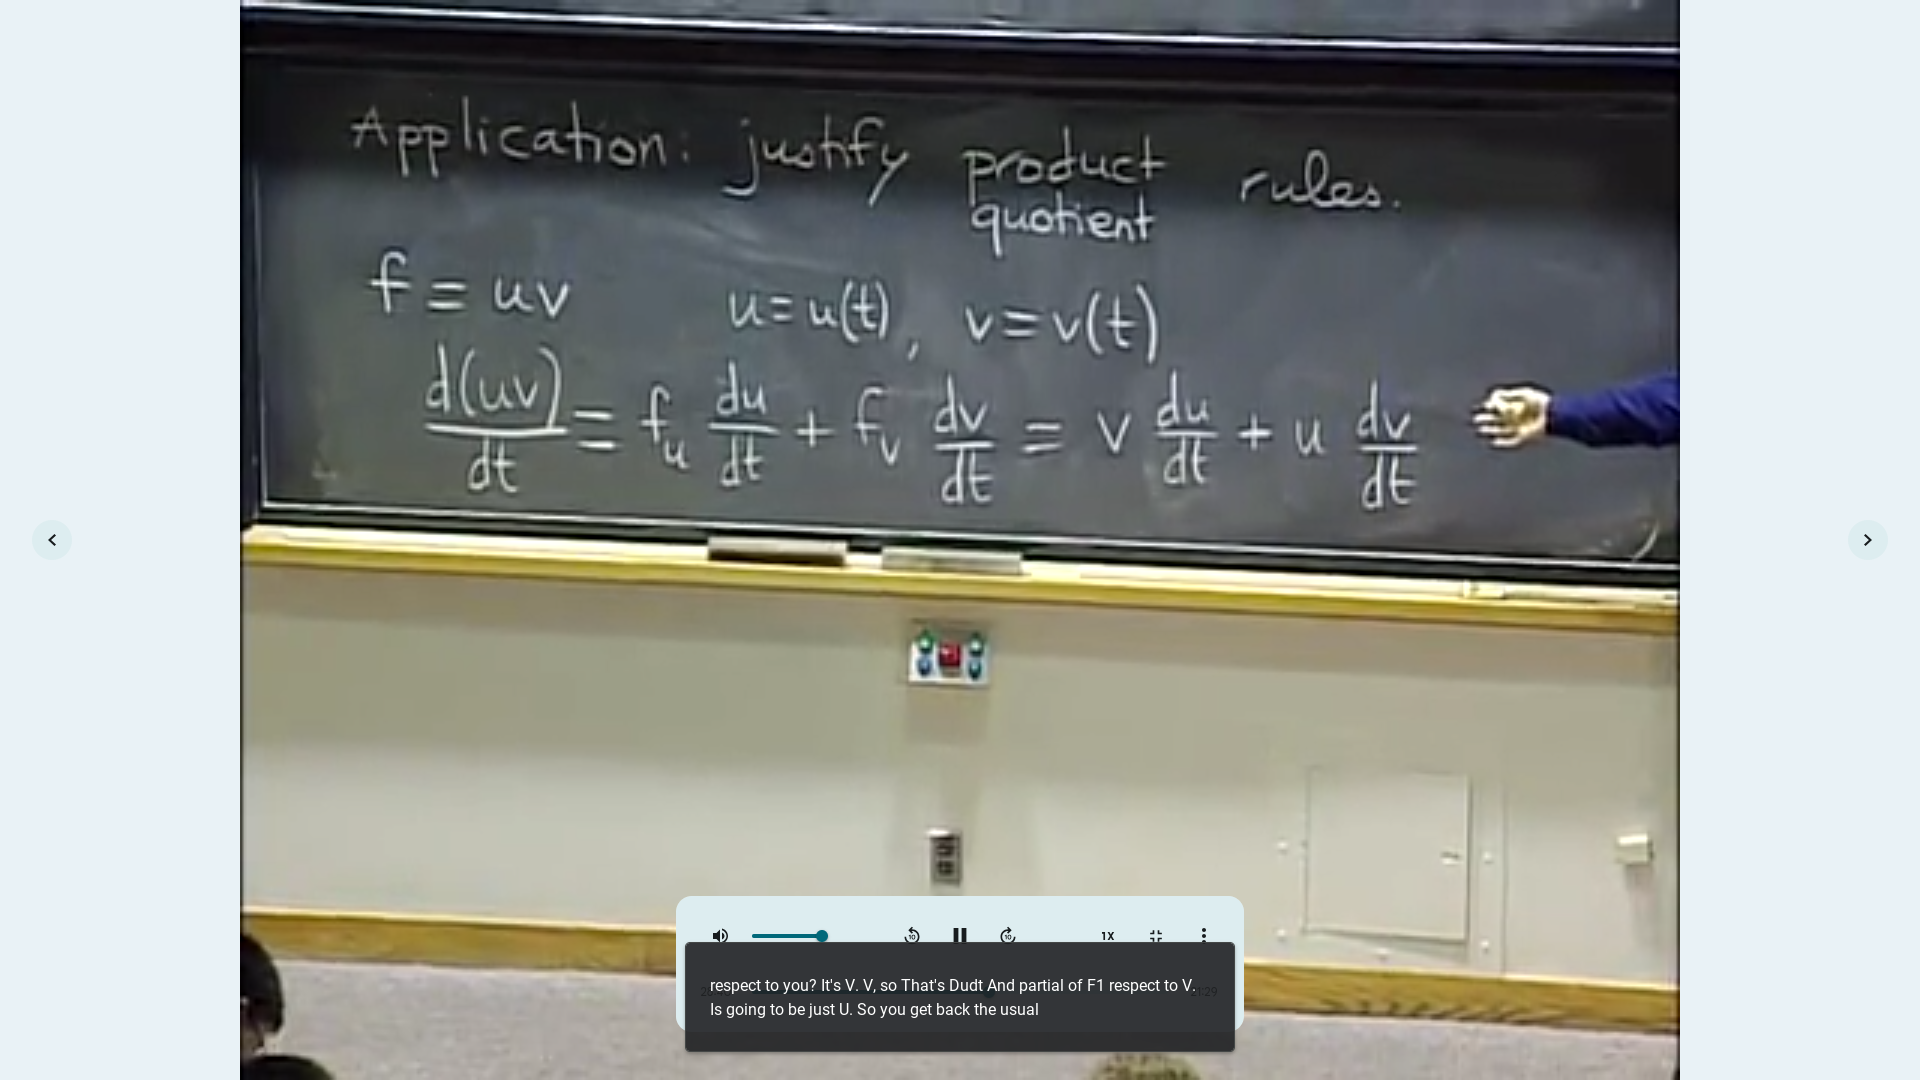 Application: justify product rules.
quotient
f = uv u = u(t), v = v(t)
d(uv)/dt = f_u du/dt + f_v dv/dt = v du/dt + u dv/dt
1X
respect to you? It's V. V, so That's Dudt And partial of F1 respect to V.
Is going to be just U. So you get back the usual